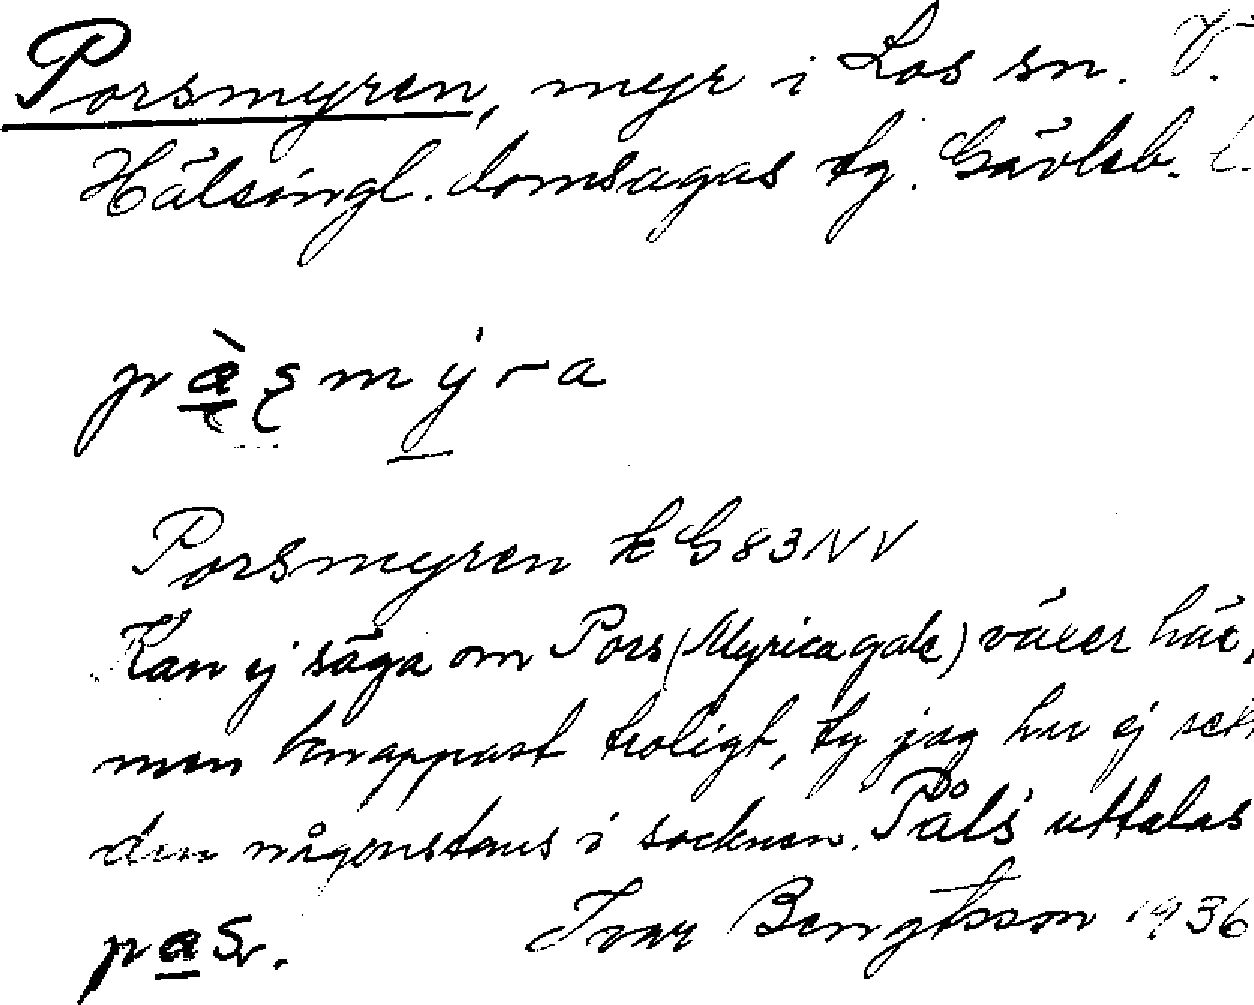 Porsmyren, myr i Los sn. V.
Hälsingl. domsagas tg. Gävleb. l.
pàsmýra
Porsmyren k G 83 NV
Kan ej säga om Pors (Myrica gale) växer här,
men knappast troligt, ty jag har ej sett
den någonstans i socknen. Påls uttalas
pas.
Ivar Bengtsson 1936